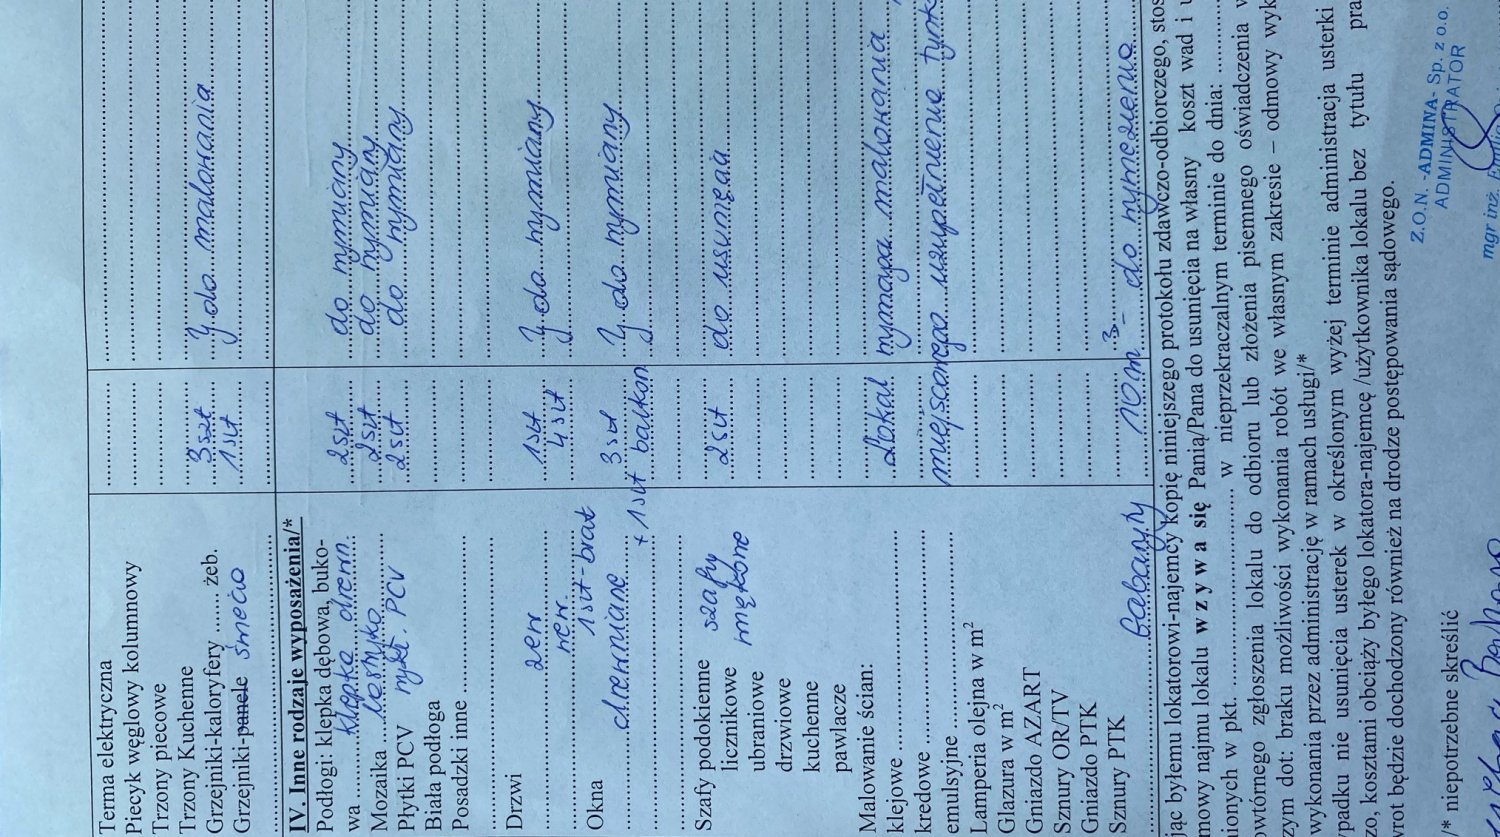 Terma elektryczna ........
Piecyk węglowy kolumnowy ........
Trzony piecowe ........
Trzony Kuchenne ........
Grzejniki-kaloryfery ....... żeb. 3 szt } do malowania
Grzejniki-panele 1 szt
IV. Inne rodzaje wyposażenia/*
Podłogi: klepka dębowa, buko-
wa klepka drewn. 2 szt do wymiany
Mozaika 2 szt do wymiany
Płytki PCV PCV 2 szt do wymiany
Biała podłoga ........
Posadzki inne ........
Drzwi zew 1 szt } do wymiany
wew. 4 szt
Okna 1 szt - brak
drewniane 3 szt } do wymiany
+ 1 szt balkon
Szafy podokienne szafy
licznikowe wnękowe 2 szt do usunięcia
ubraniowe
drzwiowe
kuchenne
pawlacze
Malowanie ścian:
klejowe ........ lokal wymaga malowania
kredowe ........
emulsyjne ........ miejscowego uzupełnienie tynk
Lamperia olejna w m²
Glazura w m²
Gniazdo AZART
Sznury OR/TV
Gniazdo PTK
Sznury PTK
Gabaryty 10 m³ - do wywiezienia
jąc byłemu lokatorowi-najemcy kopię niniejszego protokołu zdawczo-odbiorczego, stos
mowy najmu lokalu w z y w a się Panią/Pana do usunięcia na własny koszt wad i u
ionych w pkt. ........ w nieprzekraczalnym terminie do dnia: ........
owtórnego zgłoszenia lokalu do odbioru lub złożenia pisemnego oświadczenia w
zym dot. braku możliwości wykonania robót we własnym zakresie – odmowy wyk
wykonania przez administrację w ramach usługi/*
padku nie usunięcia usterek w określonym wyżej terminie administracja usterki
zo, kosztami obciąży byłego lokatora-najemcę /użytkownika lokalu bez tytułu pra
wrot będzie dochodzony również na drodze postępowania sądowego.
Z.O.N. -ADMINA- Sp. z o.o.
ADMINISTRATOR
mgr inż.
/* niepotrzebne skreślić